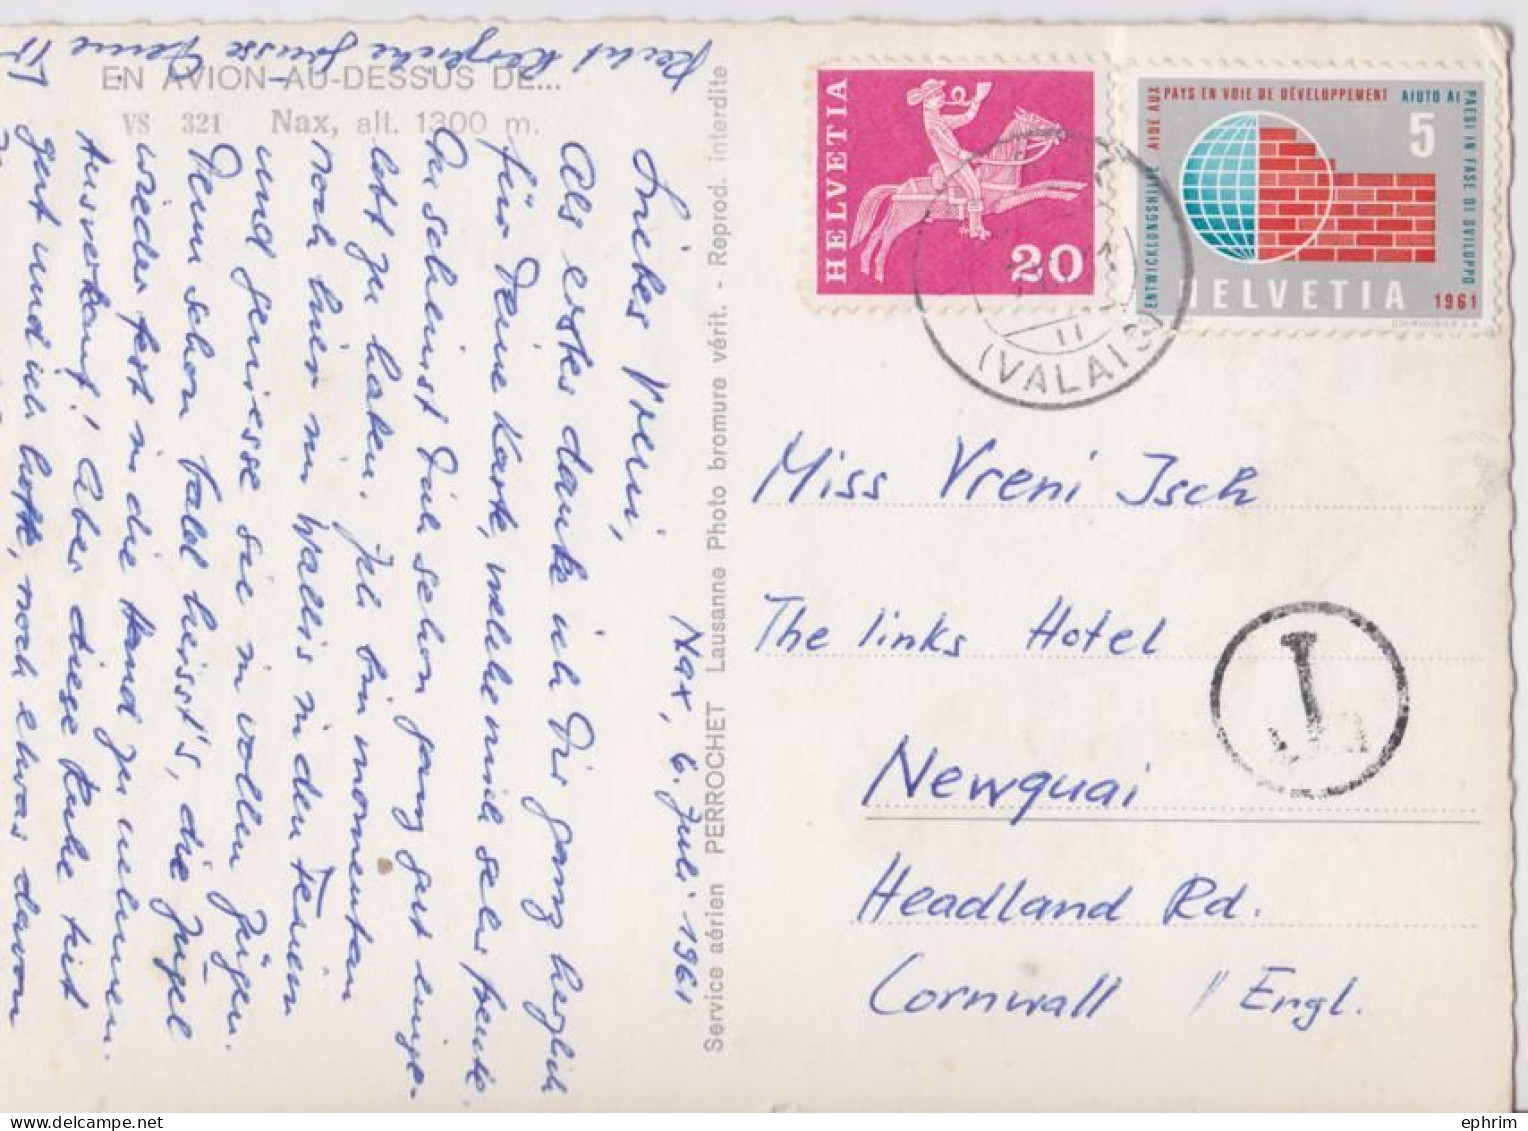 EN AVION AU-DESSUS DE...
VS 321 Nax, alt. 1300 m.
Service aérien PERROCHET Lausanne Photo bromure vérit. - Reprod. interdite
Nax, 6. Juli 1961
Liebes Vreni,
Als erstes danke ich Dir ganz herzlich
für Deine Karte, welche mich sehr freute.
Du scheinst Dich schon ganz gut einge-
lebt zu haben. Ich bin momentan
noch hier im Wallis in den Ferien
und geniesse sie in vollen Zügen.
Denn schon bald heisst's, die Zügel
wieder fest in die Hand zu nehmen.
Ausverkauf! Aber diese Ruhe tut
gut und ich hoffe, noch etwas davon
Recht herzliche Grüsse Deine
HELVETIA
20
ENTWICKLUNGSHILFE AIDE AUX PAYS EN VOIE DE DÉVELOPPEMENT AIUTO AI PAESI IN FASE DI SVILUPPO
5
HELVETIA
1961
(VALAIS)
Miss Vreni Isch
The links Hotel
Newquai
Headland Rd.
Cornwall / Engl.
T
ephrim